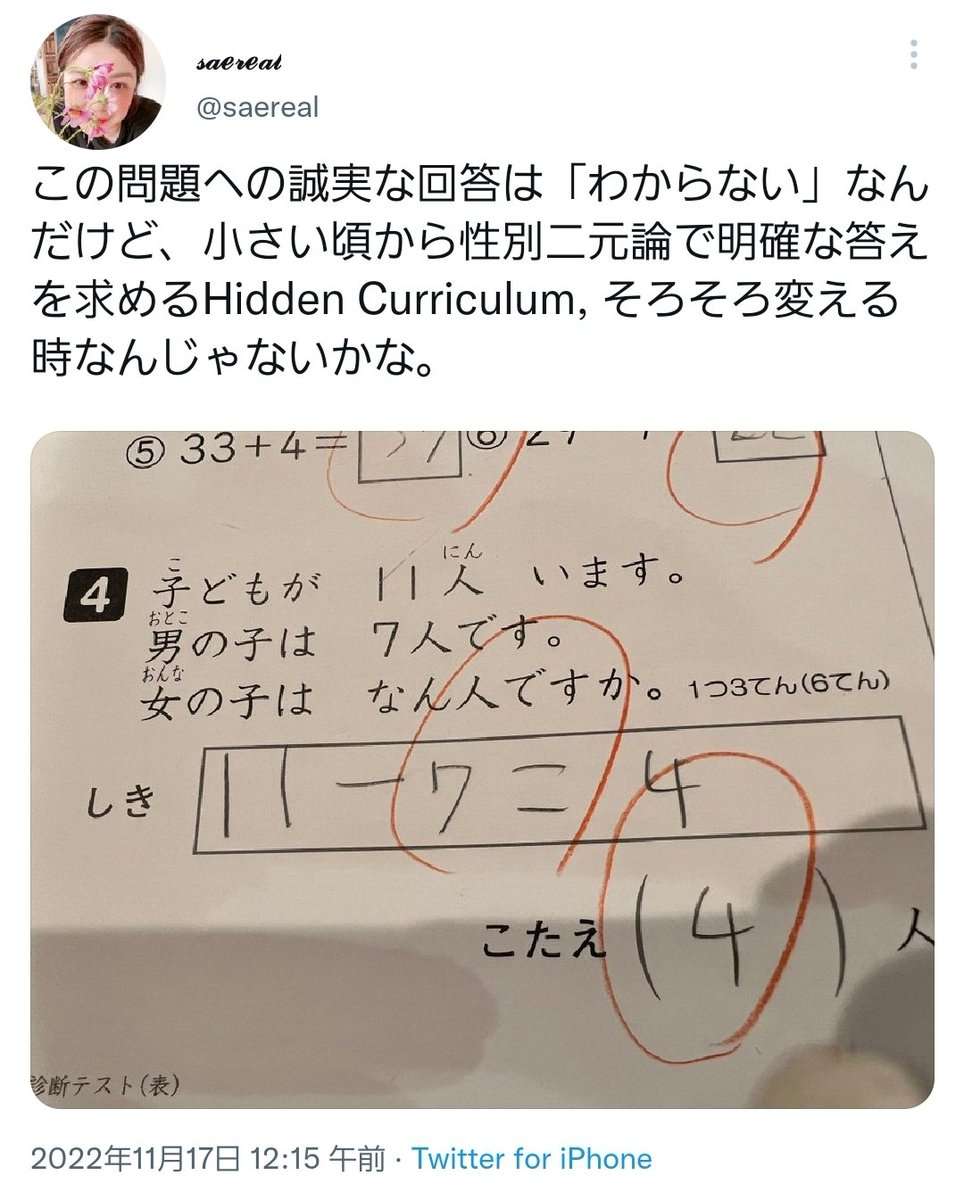 saereal
@saereal
この問題への誠実な回答は「わからない」なん
だけど、小さい頃から性別二元論で明確な答え
を求めるHidden Curriculum, そろそろ変える
時なんじゃないかな。
⑤ 33+4= 37 ⑥
こ にん
4 子どもが 11人 います。
おとこ
男の子は 7人です。
おんな
女の子は なん人ですか。 1つ3てん(6てん)
しき 11-7=4
こたえ (4)人
診断テスト(表)
2022年11月17日 12:15 午前 · Twitter for iPhone